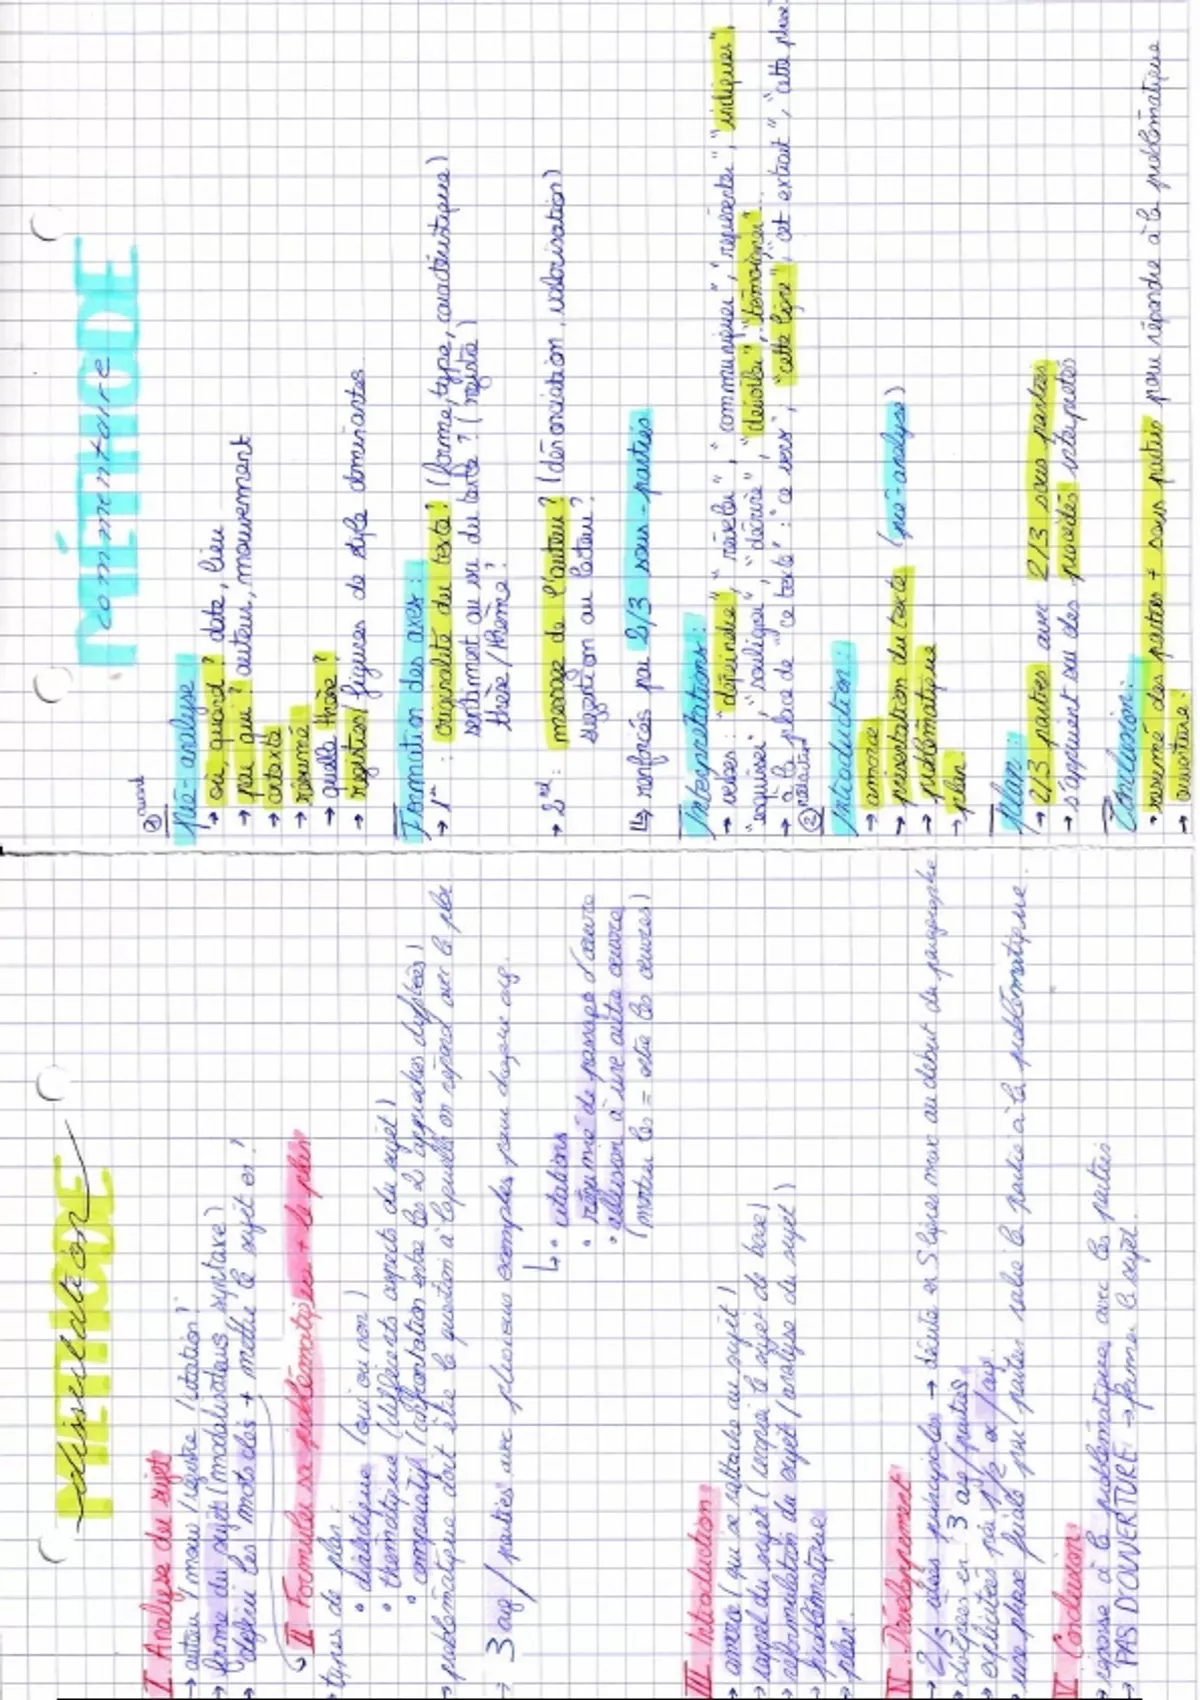 MÉTHODE
dissertation
I. Analyse du sujet
→ auteur / mouv / registre / citation ?
→ forme du sujet (modalisateurs, syntaxe)
→ définir les mots clés + mettre le sujet en ?
II Formuler sa problématique + le plan
→ types de plan :
• dialectique (oui ou non)
• thématique (différents aspects du sujet)
• comparatif (confrontation entre les 2 approches)
→ problématique doit être la question à laquelle on répond avec le plan
→ 3 arg / parties avec plusieurs exemples pour chaque arg.
↳ • citations
• résumé de passage d'œuvre
• allusion à une autre œuvre
(montrer les = entre les œuvres)
III Introduction :
→ amorce (qui se rattache au sujet)
→ rappel du sujet (le sujet de base)
→ reformulation du sujet (analyse du sujet)
→ problématique
→ plan
IV. Développement
→ 2/3 idées principales → décrite en 5 lignes max au début du paragraphe
→ divisées en 3 arg / parties
→ explicités par 1/2 ex / arg
→ une phase finale par parties relie la partie à la problématique.
V. Conclusion :
→ réponse à la problématique avec les parties
→ PAS D'OUVERTURE → fermer le sujet.
MÉTHODE
commentaire
①
pré-analyse :
→ où, quand ? date, lieu
→ par qui ? auteur, mouvement
→ contexte
→ résumé
→ quelle thèse ?
→ registres / figures de style dominantes
Formation des axes :
→ 1er : originalité du texte ? (forme, type, caractéristiques)
sentiment au vu du texte ? (registre)
thèse / thème ?
→ 2nd : message de l'auteur ? (dénonciation, valorisation)
suggestion au lecteur ?
↳ renforcés par 2/3 sous-parties
Interprétations :
→ verbes : "dépeindre", "révéler", "communiquer", "représenter", "indiquer",
"esquisser", "souligner", "décrire", "dévoiler", "témoigner"...
→ à la place de "ce texte" : "ce vers", "cette ligne", "cet extrait", "cette phrase"
② rédaction
introduction :
→ amorce
→ présentation du texte (pré-analyse)
→ problématique
→ plan
plan :
→ 2/3 parties avec 2/3 sous parties
→ s'appuient sur des procédés interprétés
Conclusion :
→ résumé des parties + sous parties pour répondre à la problématique
→ ouverture.